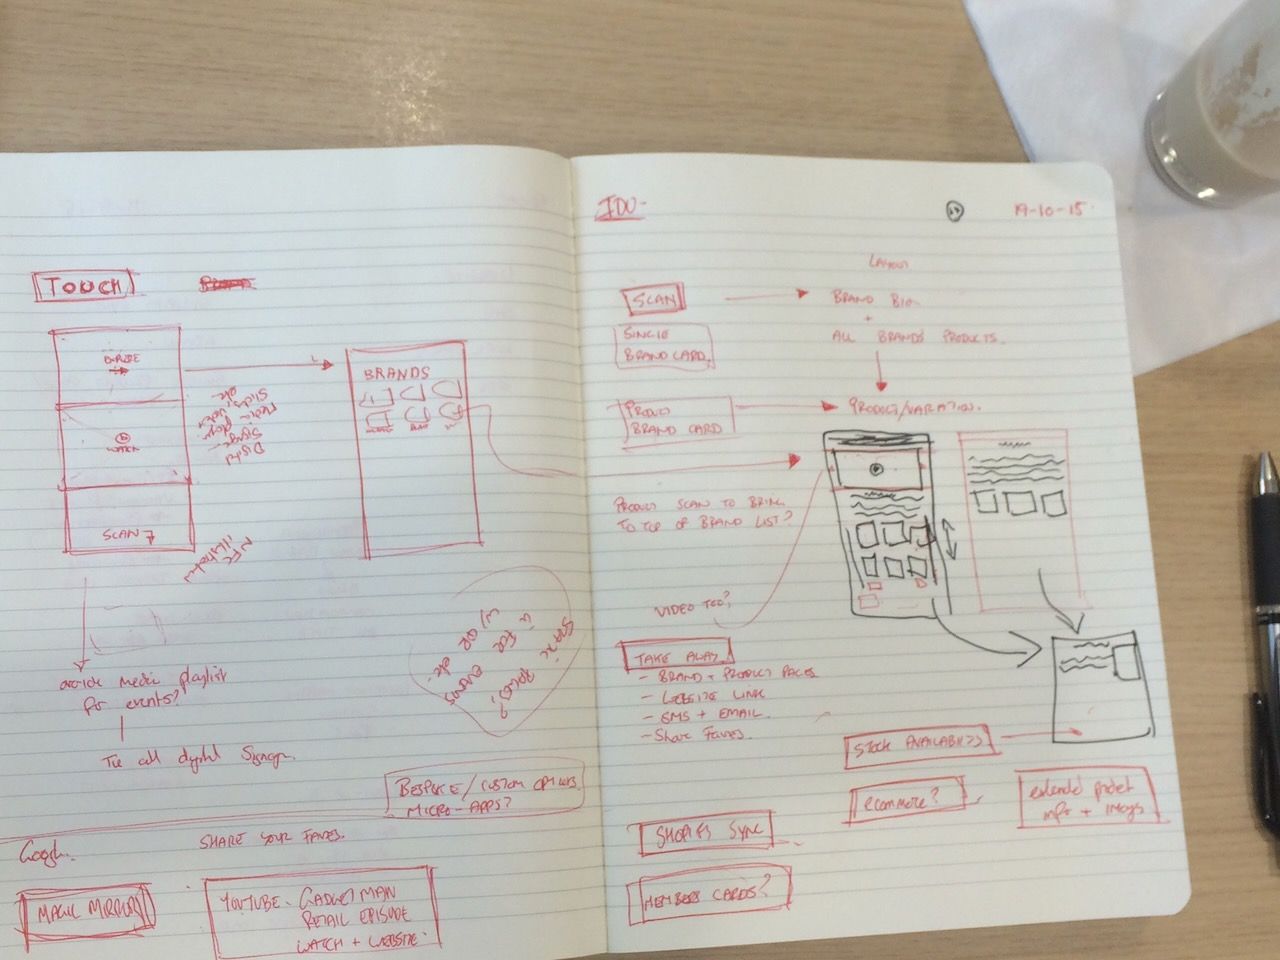 TOUCH
EXPLORE
WATCH
SCAN
BRANDS
Digital
Signage
Media player
NFC
for events?
provide media playlist
Tie all digital signage.
BESPOKE / CUSTOM OPTIONS
MICRO-APPS?
SHARE YOUR FAVES.
Google
MAGIC MIRRORS
YOUTUBE. GADGET MAN
RETAIL EPISODE
WATCH + WEBSITE.
IDU-
19-10-15
LAYOUT
SCAN
BRAND BIO
+
ALL BRANDS PRODUCTS.
SINGLE
BRAND CARD.
PRODUCT
BRAND CARD
PRODUCT/VARIATION.
PRODUCT SCAN TO BRING
TO TOP OF BRAND LIST?
VIDEO TOO?
TAKE AWAY
- BRAND + PRODUCT PAGES
- WEBSITE LINK
- SMS + EMAIL.
- Share Faves.
STOCK AVAILABILITY
ecommerce?
extended product
info + images
SHOPIFY SYNC
MEMBERS CARDS?